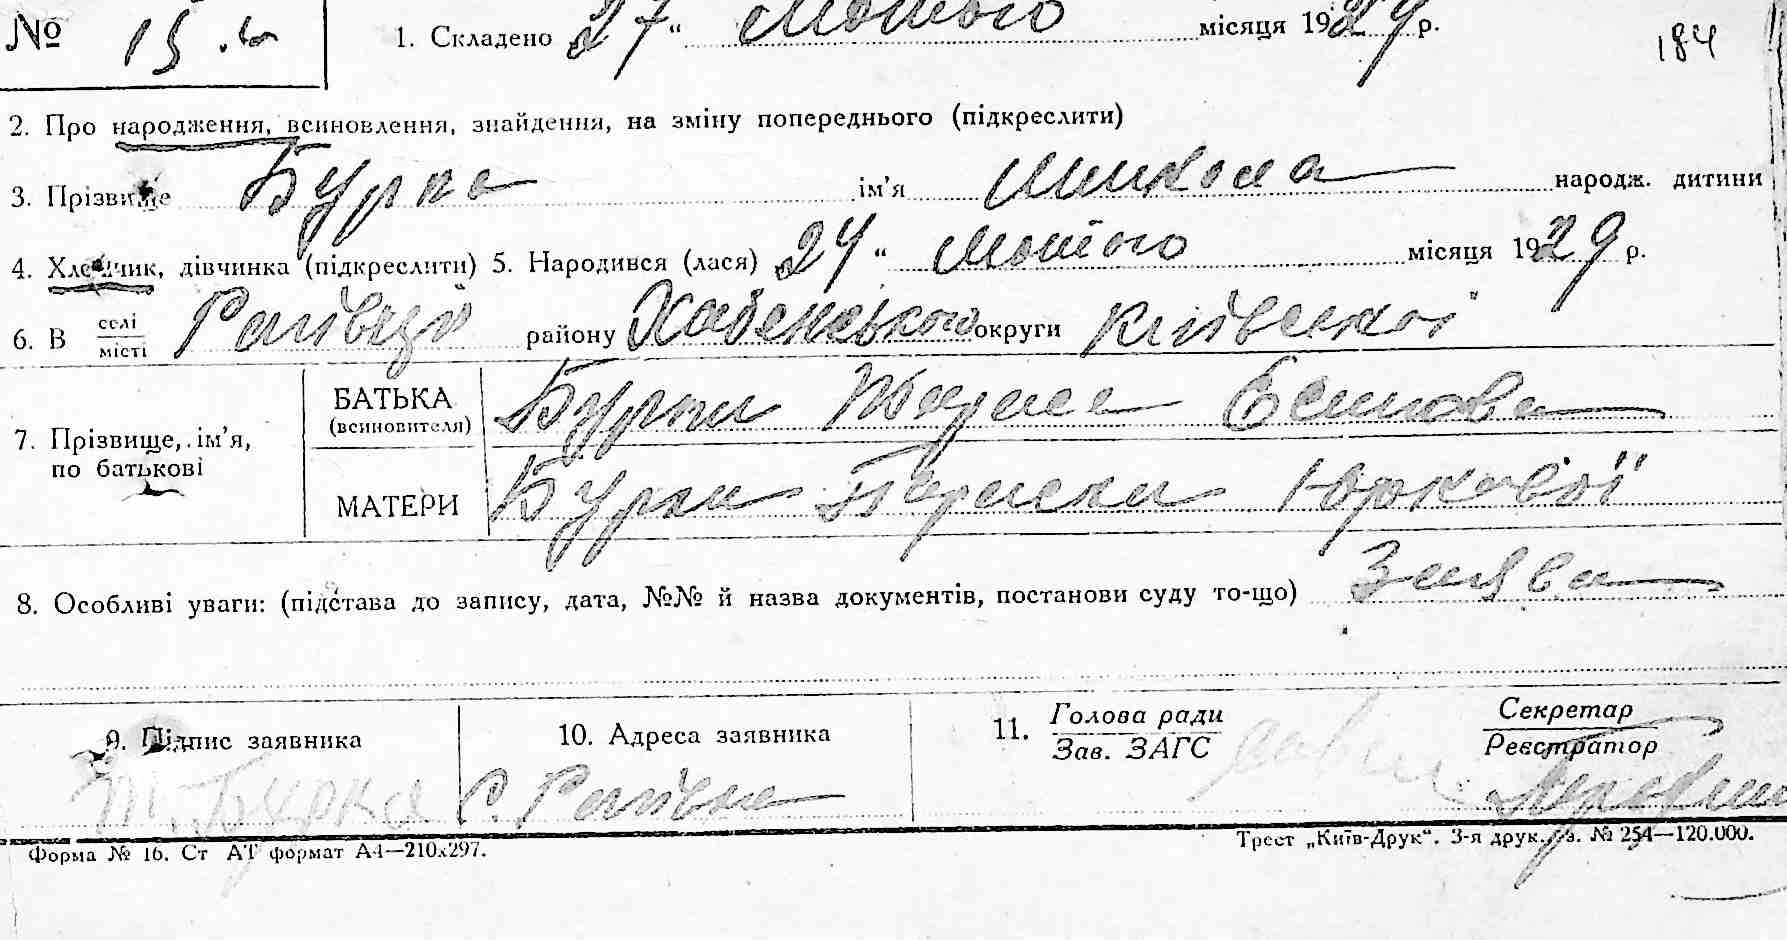 № 15 1. Складено 27 " Лютого місяця 1929 р. 184
2. Про народження, всиновлення, знайдення, на зміну попереднього (підкреслити)
3. Прізвище Бурка ім'я Микола народж. дитини
4. Хлопчик, дівчинка (підкреслити) 5. Народився (лася) 24 " Лютого місяця 1929 р.
6. В селі/місті Рагівці району Хабенського округи Київської
7. Прізвище, ім'я, по батькові
БАТЬКА (всиновителя) Бурки Тараса
МАТЕРИ Бурки Параски Юркової
8. Особливі уваги: (підстава до запису, дата, №№ й назва документів, постанови суду то-що) Заява
9. Підпис заявника 10. Адреса заявника 11. Голова ради Секретар
Зав. ЗАГС Реєстратор
Т. Бурка С. Рагівка
Форма № 16. Ст АТ формат А4—210х297. Трест „Київ-Друк“. 3-я друк. з. № 254—120.000.